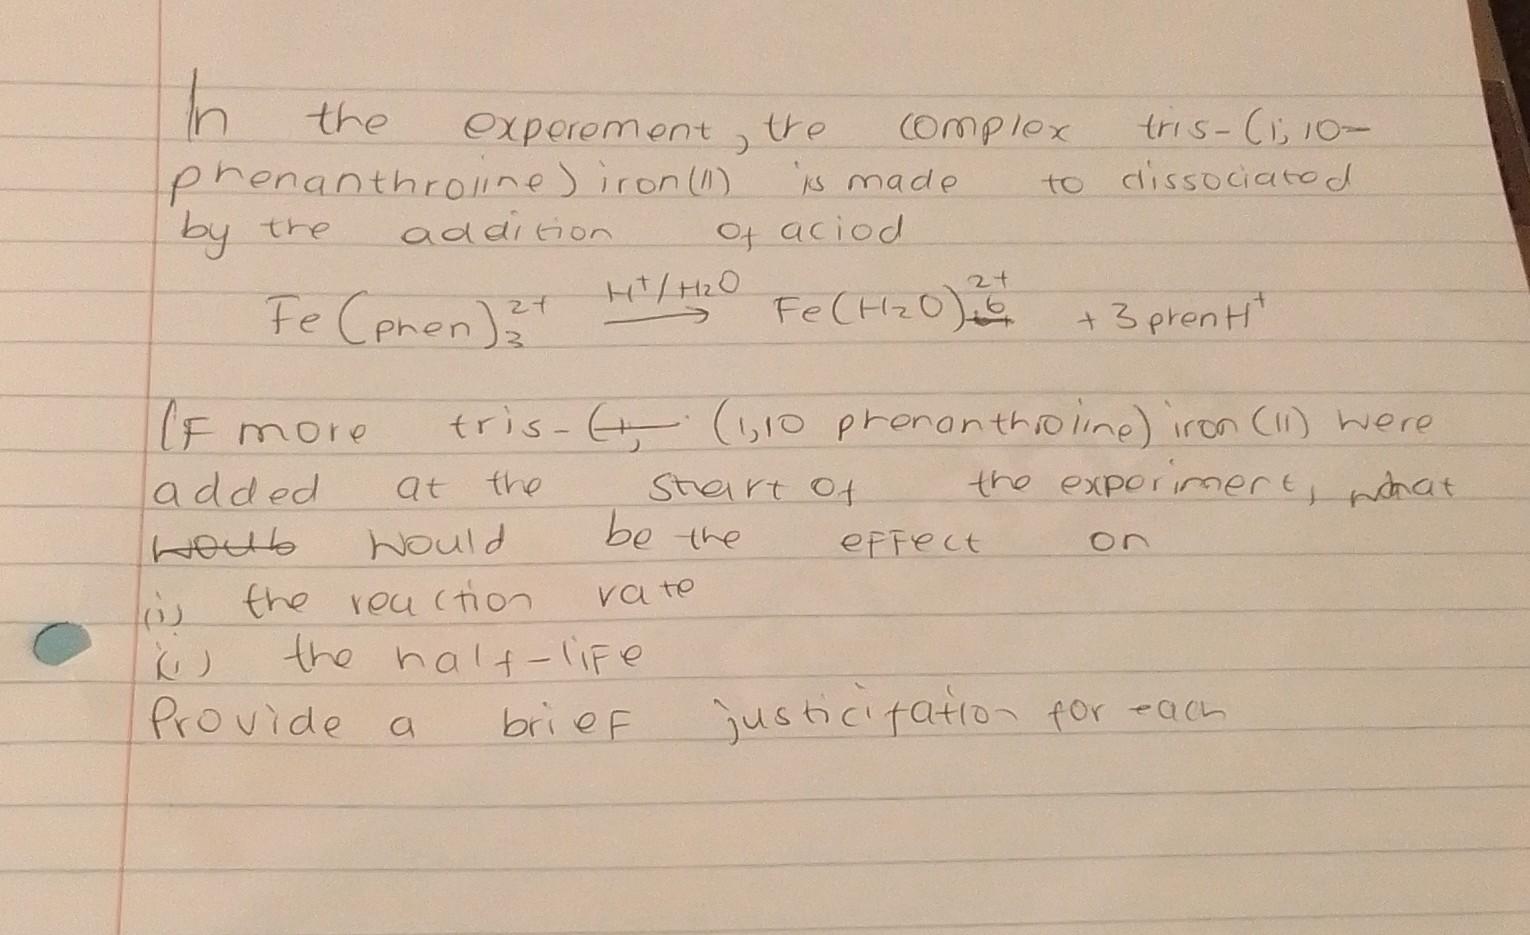 In the experement, the complex tris-(1,10-
phenanthroline) iron(II) is made to dissociated
by the addition of aciod
Fe(phen)₃²⁺ H⁺/H₂O → Fe(H₂O)₆²⁺ + 3 phenH⁺
If more tris- (1,10 phenanthroline) iron (II) were
added at the start of the experiment, what
would be the effect on
(i) the reaction rate
(ii) the half-life
Provide a brief justicifation for each